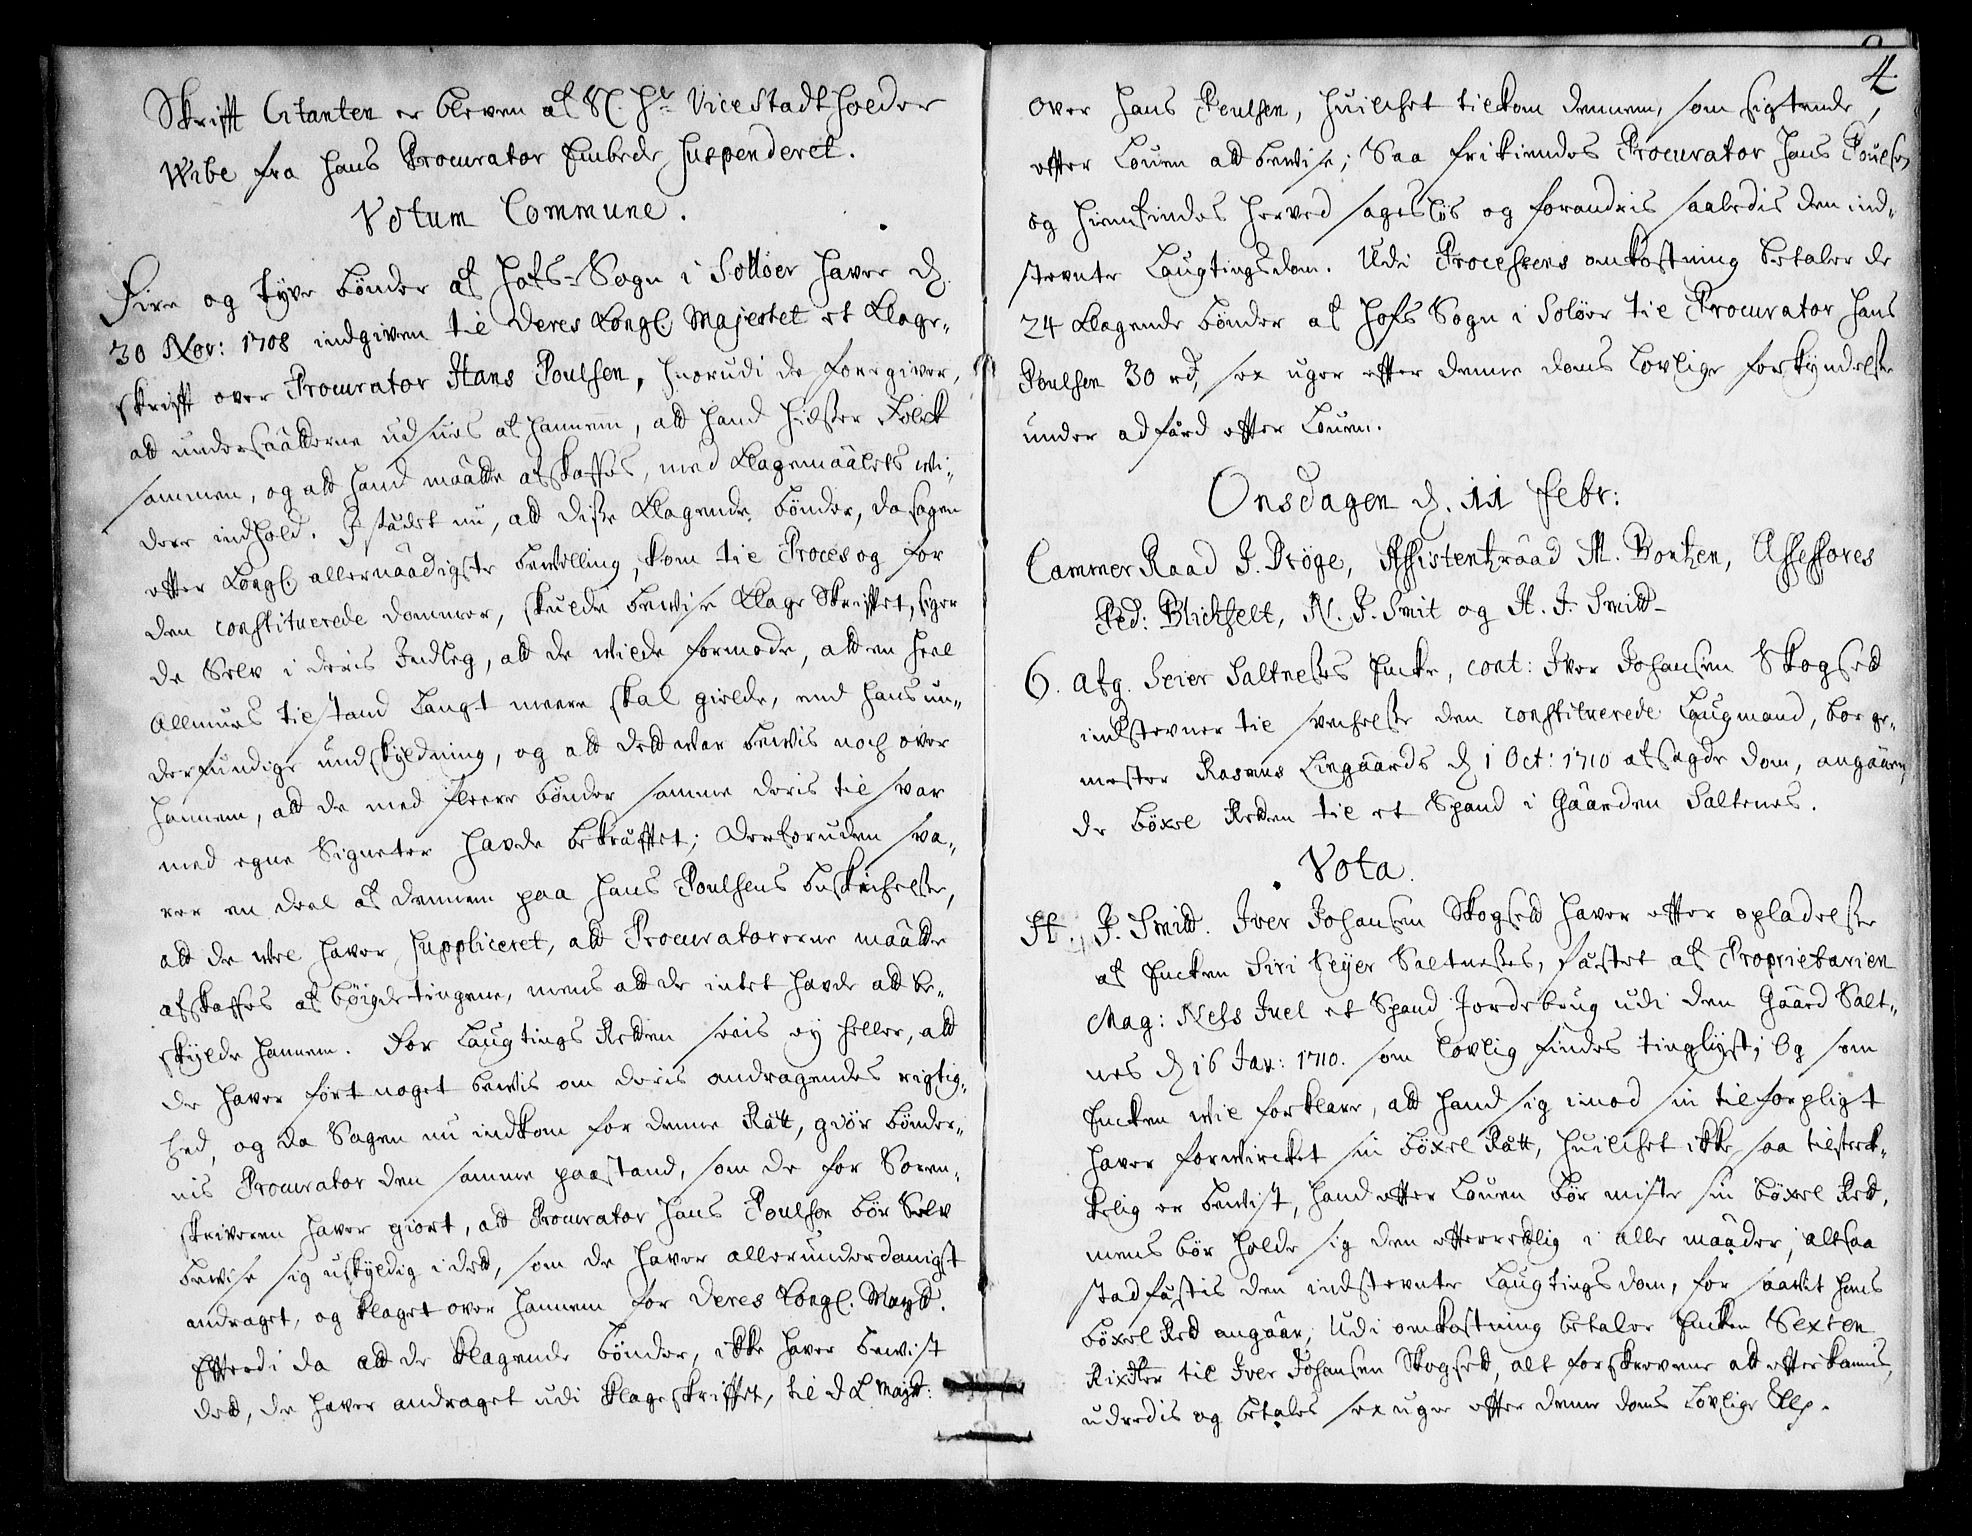 Skrifft Citanten er bleven af Sl. Hr. Vice Stadtholder
Wibe fra hans Procurator Embede suspenderet.
Votum Commune.
Fire og tyve bønder af Hofs-Sogn i Solløer haver d.
30 Nov: 1708 indgiven til Deres Kongl. Majestet et klage-
skrifft over Procurator Hans Poulsen, hvorudi de foregiver,
att undersaatterne udsues af hannem, att hand hidser Folck
sammen, og att hand maatte afskaffes, med klagemaalets wi-
dere indhold. I stædet nu, att disse klagende bønder, da sagen
efter Kongl. allernaadigste bewilling, kom til Proces og for
den constituerede dommer, skulde bewise klage Skrifftet, siger
de Selv i deris Indleg, att de wilde formode, att en heel
Allmues tilstand langt meere skal gielde, end hans un-
derfundige undskyldning, og att dett war bewis noch over
hannem, att de med fleere bønder samme deris til svar
med egne Signeter hafde bekræfftet; derforuden sva-
rer en deel af dennem paa Hans Poulsens beskichelse,
att de wel haver suppliceret, att Procuratorerne maatte
afskaffes af bøigdetingene, mens att de intet hafde att be-
skylde hannem. For Laugtings Retten sees ey heller, att
de haver ført noget bewis om deris andragendes rigtig-
hed, og da Sagen nu indkom for denne Rætt, giør bønder-
nis Procurator den samme paastand, som de for Soren-
skriveren haver giort, att Procurator Hans Poulsen bør Selv
bewise sig uskyldig i dett, som de haver allerunderdanigst
andraget, og klaget over hannem for Deres Kongl. Mayt.
Efterdi da att de klagende bønder, ikke haver bewist
dett, de haver andraget udi klageskrifftet, til d K Mayt:
4
over Hans Poulsen, huilchet tilkom dennem, som sigtende,
efter Louen att bewise; Saa frikiendes Procurator Hans Poulsen
og hiemfindes herved sagesløs og forandris saaledis den ind-
stevnte Laugtingsdom. Udi Processens omkostning betaler de
24 klagende bønder af Hofs Sogn i Soløer til Procurator Hans
Poulsen 30 rd, sex uger efter denne doms lovlige forkyndelse
under adfærd efter Louen.
Onsdagen d. 11 Febr:
Cammer Raad J. Dröge, Assistentzraad M. Bontzen, Assessores
Ped: Blichfelt, N. J. Smit og H. J. Smitt
6. Afg. Seier Saltneses Encke, cont: Iver Johansen Skogsett
indstevner til svækelse den constituerede Laugmand, borge-
mester Rasmus Lingaards d 1 Oct: 1710 afsagde dom, angaaen
de böxel Retten til et Spand i Gaarden Saltenes.
Vota.
H. J. Smitt. Iver Johansen Skogsett haver efter opladelse
af Encken Siri Seyer Saltneses, fæstet af Proprietarien
Mag: Nels Juel et Spand Jordebrug udi den Gaard Salt-
nes d 16 Jan: 1710. som lovlig findes tinglyst; Og som
Encken wil forklare, att hand sig imod sin tilforpligt
haver forwircket sin böxel Rætt, huilchet ikke saa tilstreck-
kelig er bewist, hand efter Louen bør miste sin böxel Ret,
mens bør holde sig den efterretlig i alle maader; altsaa
stadfæstis den indstevnte Laugtings dom, for saavit hans
böxel Rett angaar, Udi omkostning betaler Encken Sexten
Rixdlr til Iver Johansen Skogsett, alt forskrevene att efterkommis,
udredis og betales sex uger efter denne doms Lovlige